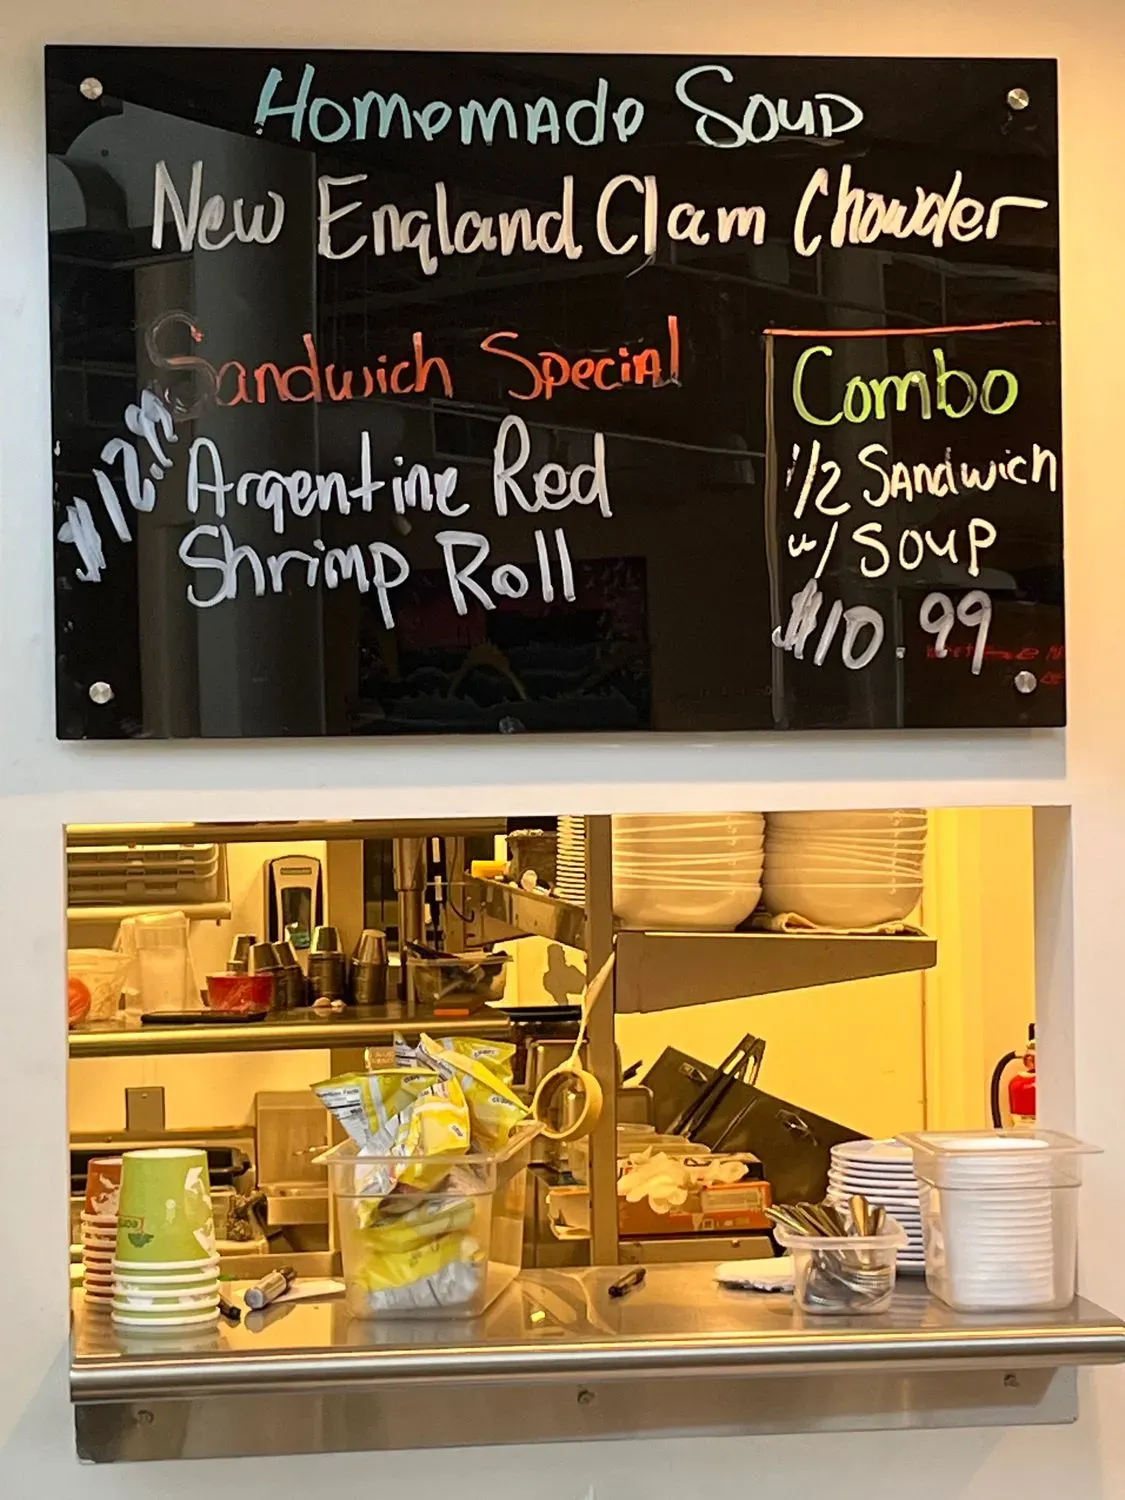 Homemade Soup
New England Clam Chowder
Sandwich Special
$12.99
Argentine Red
Shrimp Roll
Combo
1/2 Sandwich
w/ Soup
$10.99